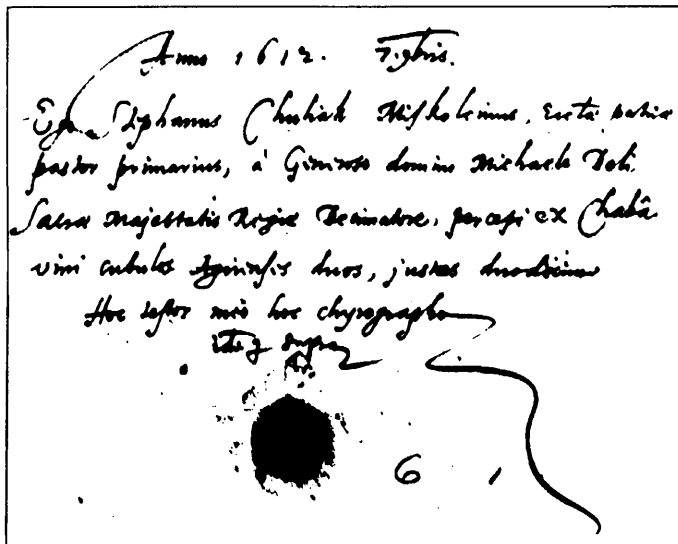 Anno 1612. 7.gbris.
Ego Stephanus Chuliak Miskolcinus, patriæ
pastor primarius, à Generoso domino Michaele Deli,
Sacræ Majestatis Regiæ Decimatore, percepi ex Chabâ
vini cubulos Agriensis duos, justas duodecim
Hoc testor meo hoc chyrographo
supra
6 1